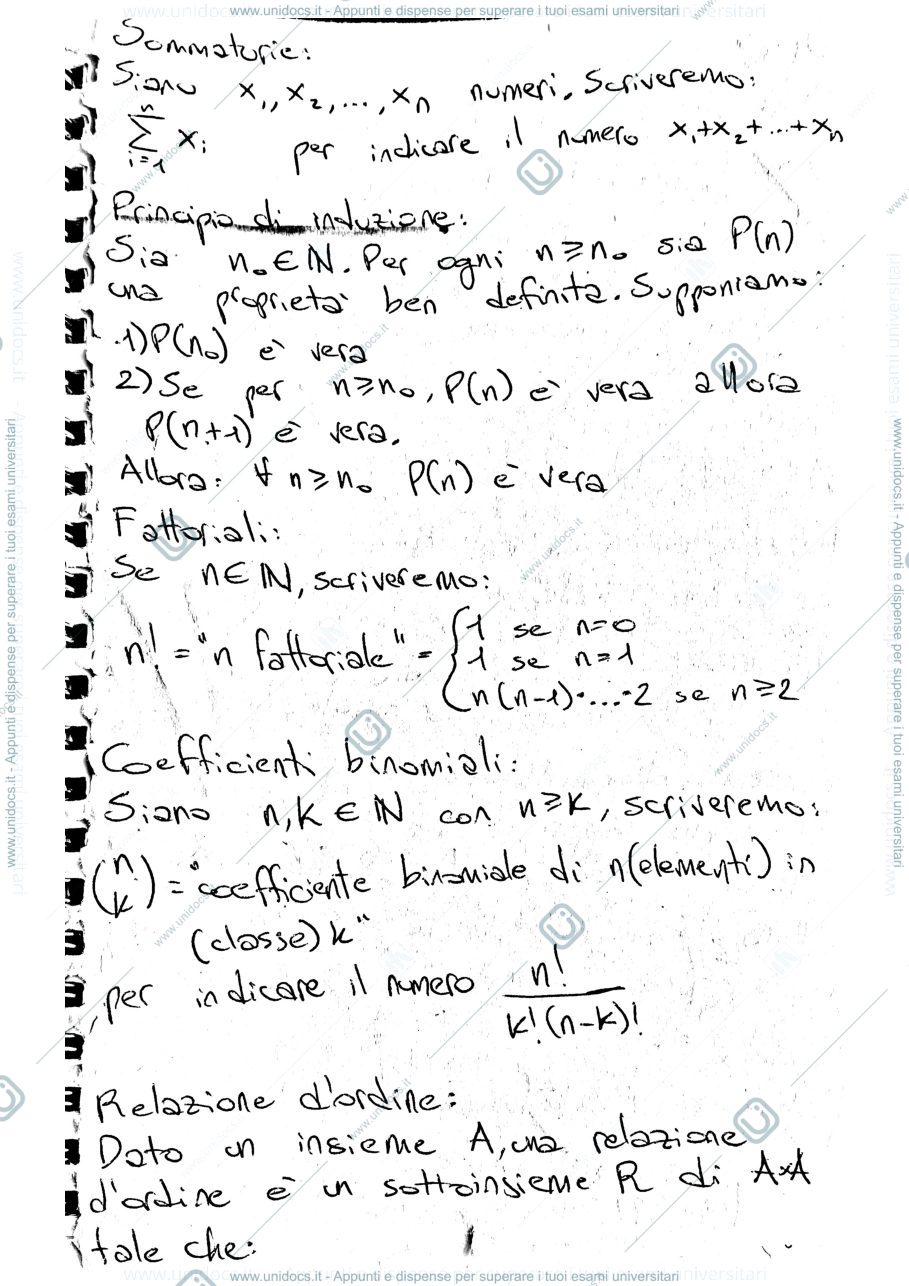 www.unidocs.it - Appunti e dispense per superare i tuoi esami universitari
Sommatorie:
Siano x₁, x₂, ..., xₙ numeri. Scriveremo:
∑ᵢ₌₁ⁿ xᵢ per indicare il numero x₁+x₂+...+xₙ
Principio di induzione:
Sia n₀ ∈ ℕ. Per ogni n ≥ n₀ sia P(n)
una proprietà ben definita. Supponiamo:
1) P(n₀) è vera
2) Se per n ≥ n₀, P(n) è vera allora
P(n+1) è vera.
Allora: ∀ n ≥ n₀ P(n) è vera
Fattoriali:
Se n ∈ ℕ, scriveremo:
n! = "n fattoriale" = { 1 se n=0
1 se n=1
n(n-1)·...·2 se n ≥ 2
Coefficienti binomiali:
Siano n, k ∈ ℕ con n ≥ k, scriveremo:
(n k) = "coefficiente binomiale di n(elementi) in
(classe) k"
per indicare il numero n! / k!(n-k)!
Relazione d'ordine:
Dato un insieme A, una relazione
d'ordine è un sottoinsieme R di A×A
tale che:
www.unidocs.it - Appunti e dispense per superare i tuoi esami universitari
www.unidocs.it - Appunti e dispense per superare i tuoi esami universitari
www.unidocs.it - Appunti e dispense per superare i tuoi esami universitari